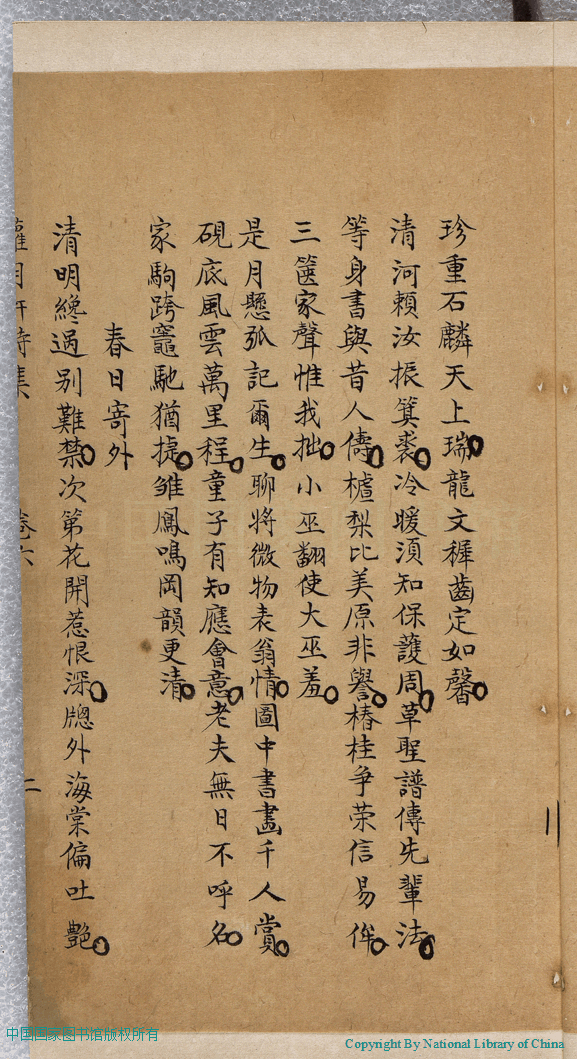 珍重石麟天上瑞龍文穉齒定如馨
清河賴汝振箕裘冷暖須知保護周草聖譜傳先輩法
等身書與昔人儔樝梨比美原非譽椿桂争荣信易侔
三箧家聲惟我拙小巫翻使大巫羞
是月懸弧記爾生聊將微物表翁情圖中書畫千人賞
硯底風雲萬里程童子有知應會意老夫無日不呼名
家駒跨竈馳猶捷雏鳳鳴岡韻更清
春日寄外
清明纔過别難禁次第花開惹恨深牕外海棠偏吐艷
月軒詩集 卷六 二
中国国家图书馆版权所有
Copyright By National Library of China